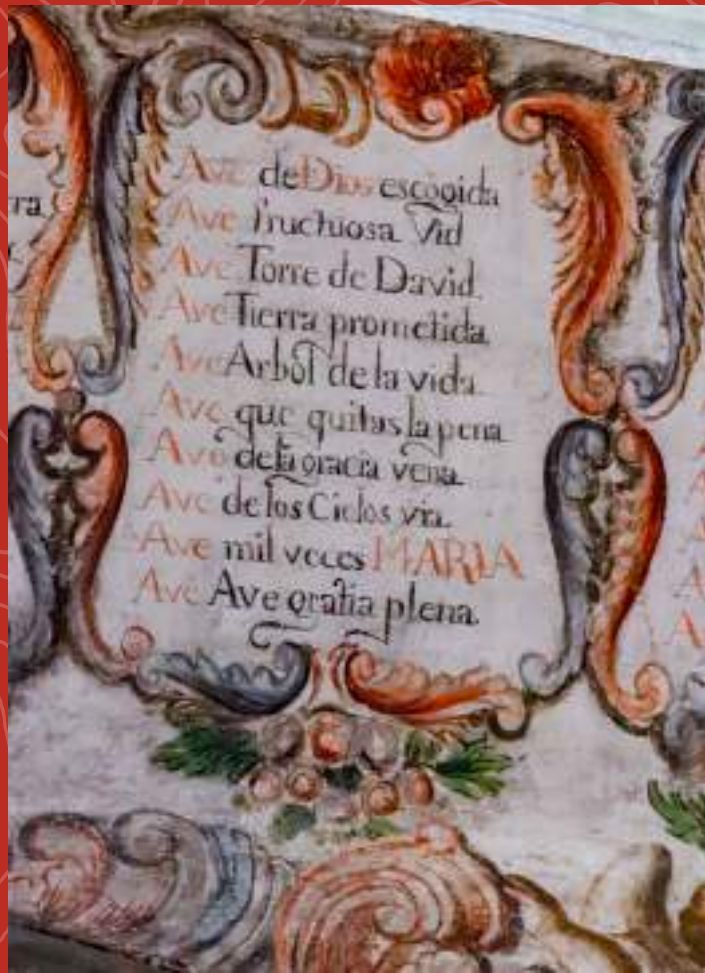 Ave de Dios escogida
Ave fructuosa Vid
Ave Torre de David
Ave Tierra prometida
Ave Arbol de la vida
Ave que quitas la pena
Ave de la gracia vena
Ave de los Cielos via
Ave mil veces MARIA
Ave Ave gratia plena.